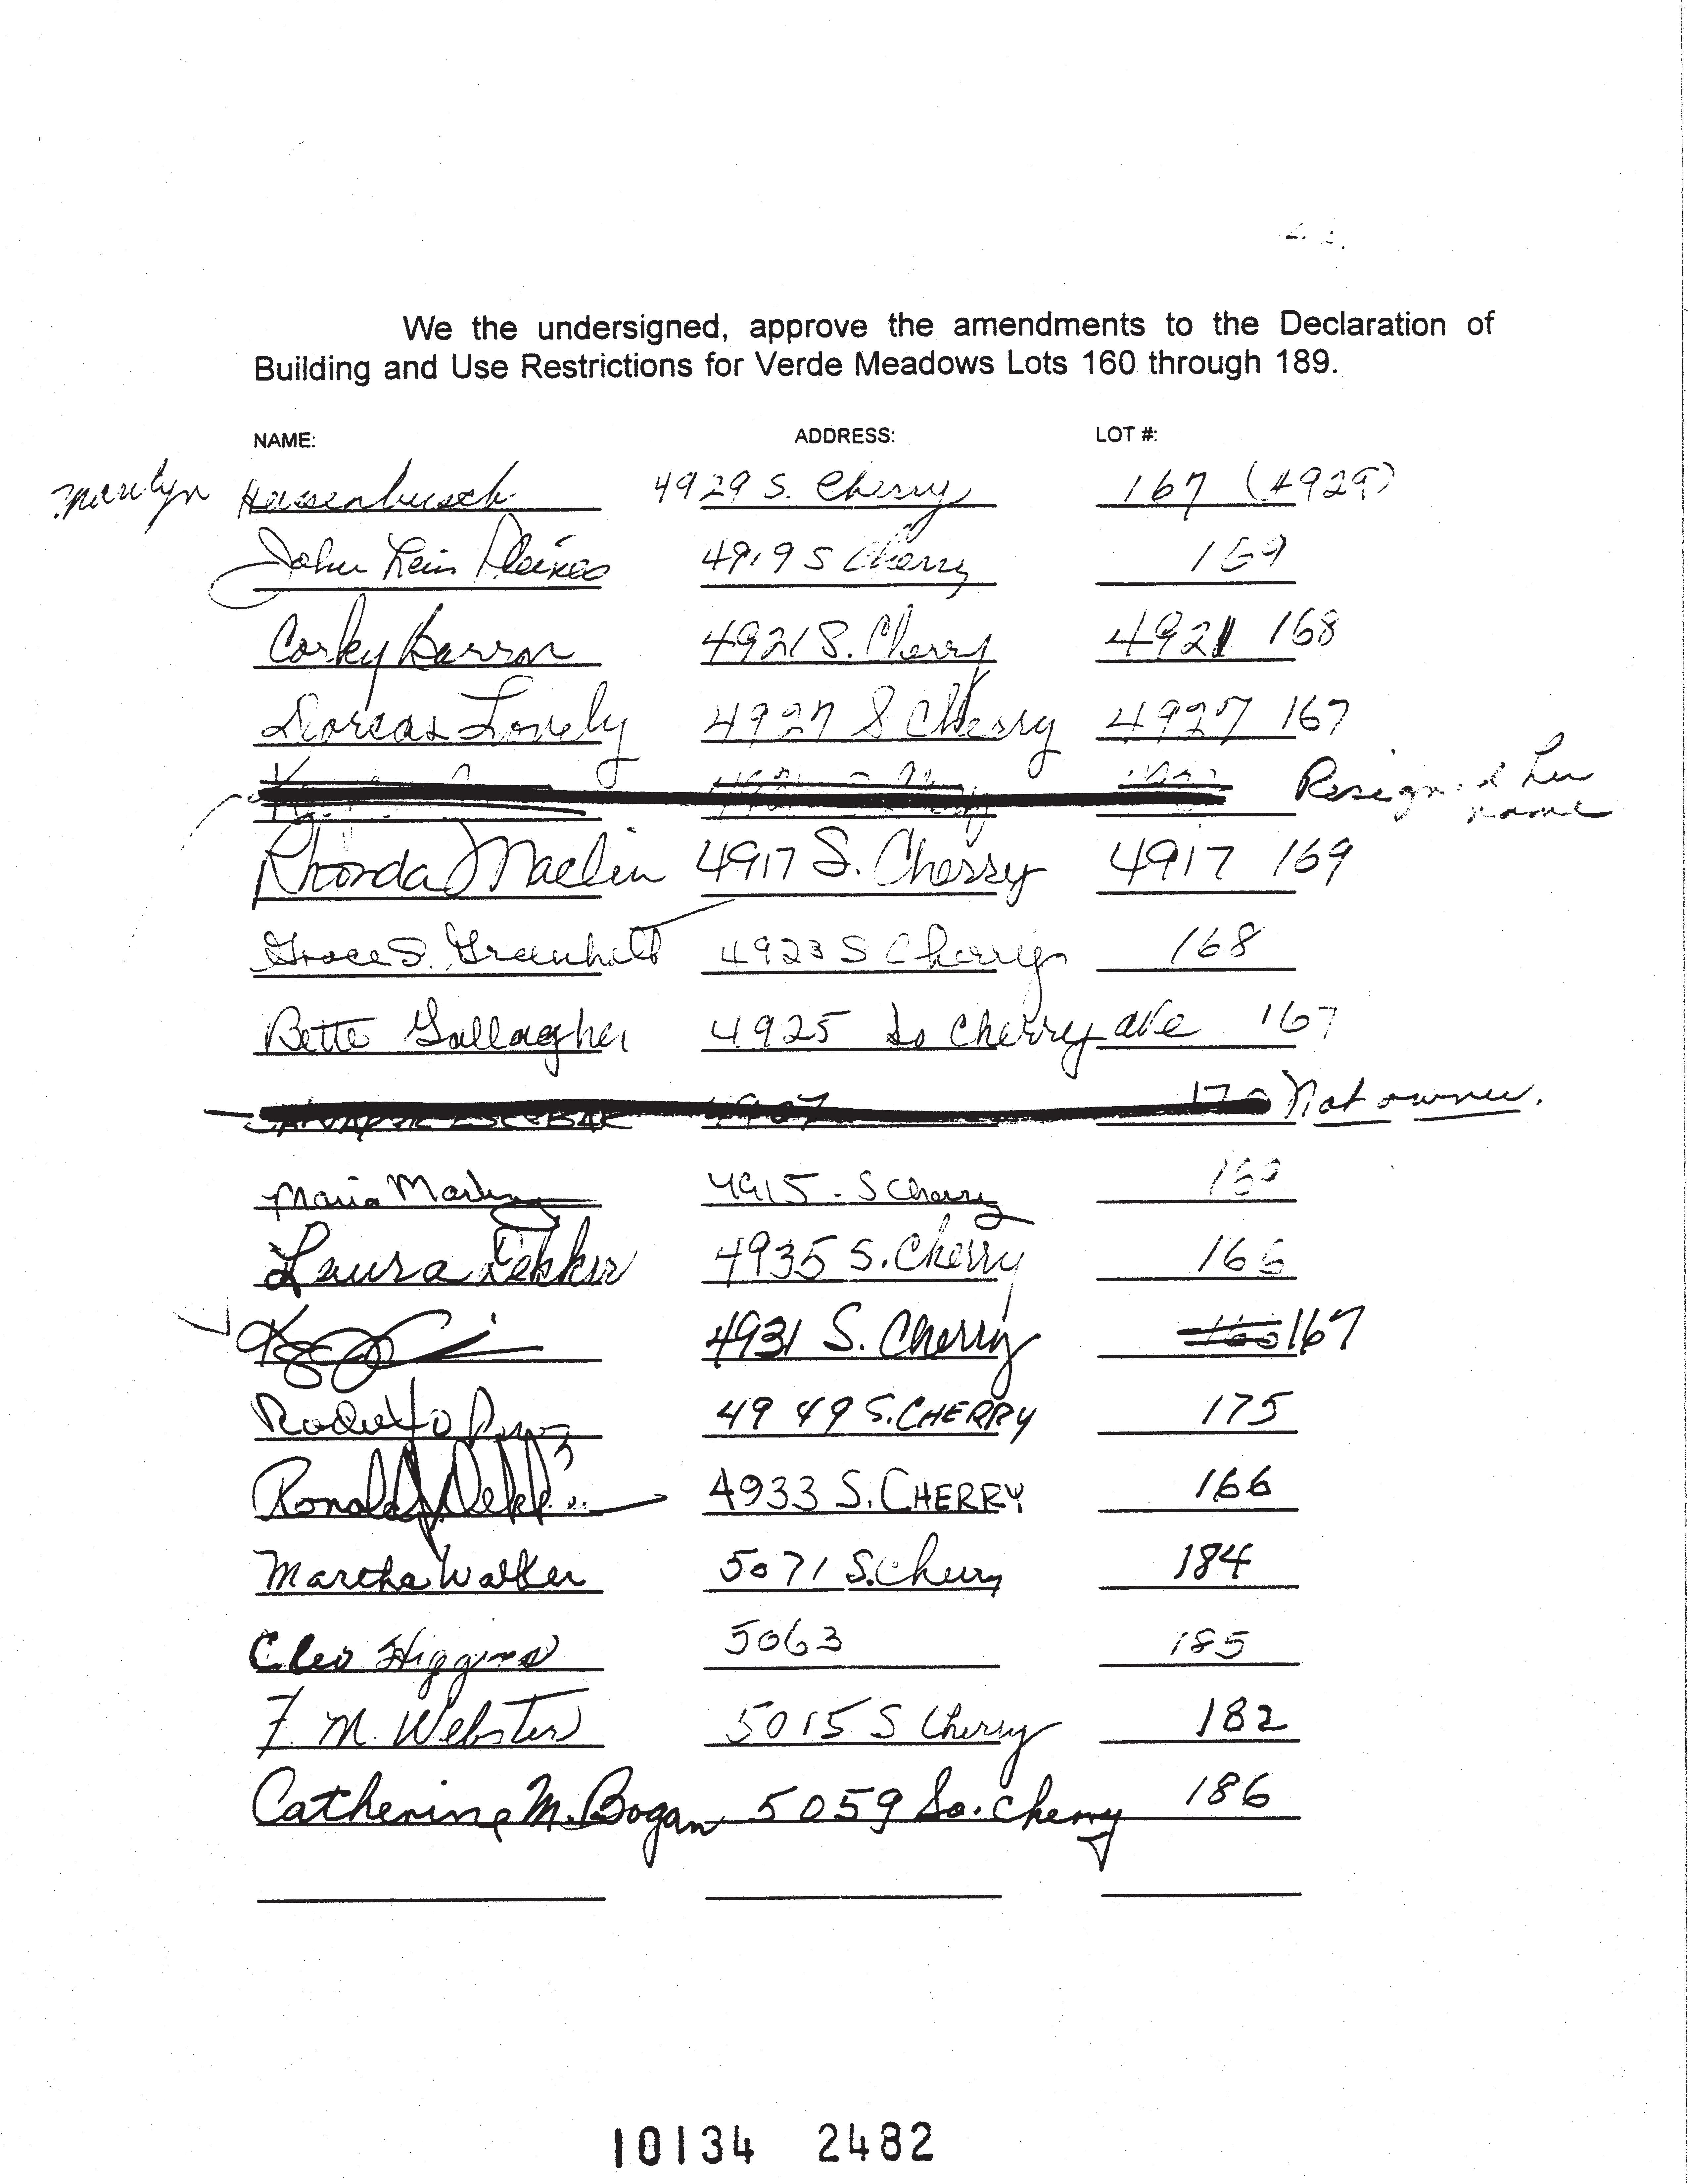 We the undersigned, approve the amendments to the Declaration of
Building and Use Restrictions for Verde Meadows Lots 160 through 189.
NAME: ADDRESS: LOT #:
Marilyn Hassenbusch 4929 S. Cherry 167 (4929)
John 4919 S Cherry 169
Corky Barron 4921 S. Cherry 4921 168
Dorcas Lovely 4927 S Cherry 4927 167
Resigned her
name
Rhonda Maclin 4917 S. Cherry 4917 169
Grace S. 4923 S Cherry 168
Bette Gallagher 4925 So Cherry ave 167
170 Not owner.
Maria 4915 - S Cherry
Laura Dekker 4935 S. Cherry 166
4931 S. Cherry 167
Rodolfo 4949 S. CHERRY 175
Ronald 4933 S. CHERRY 166
Martha Walker 5071 S. Cherry 184
Cleo Higgins 5063 185
F. M. Webster 5015 S Cherry 182
Catherine M. Bogan 5059 So. Cherry 186
10134 2482